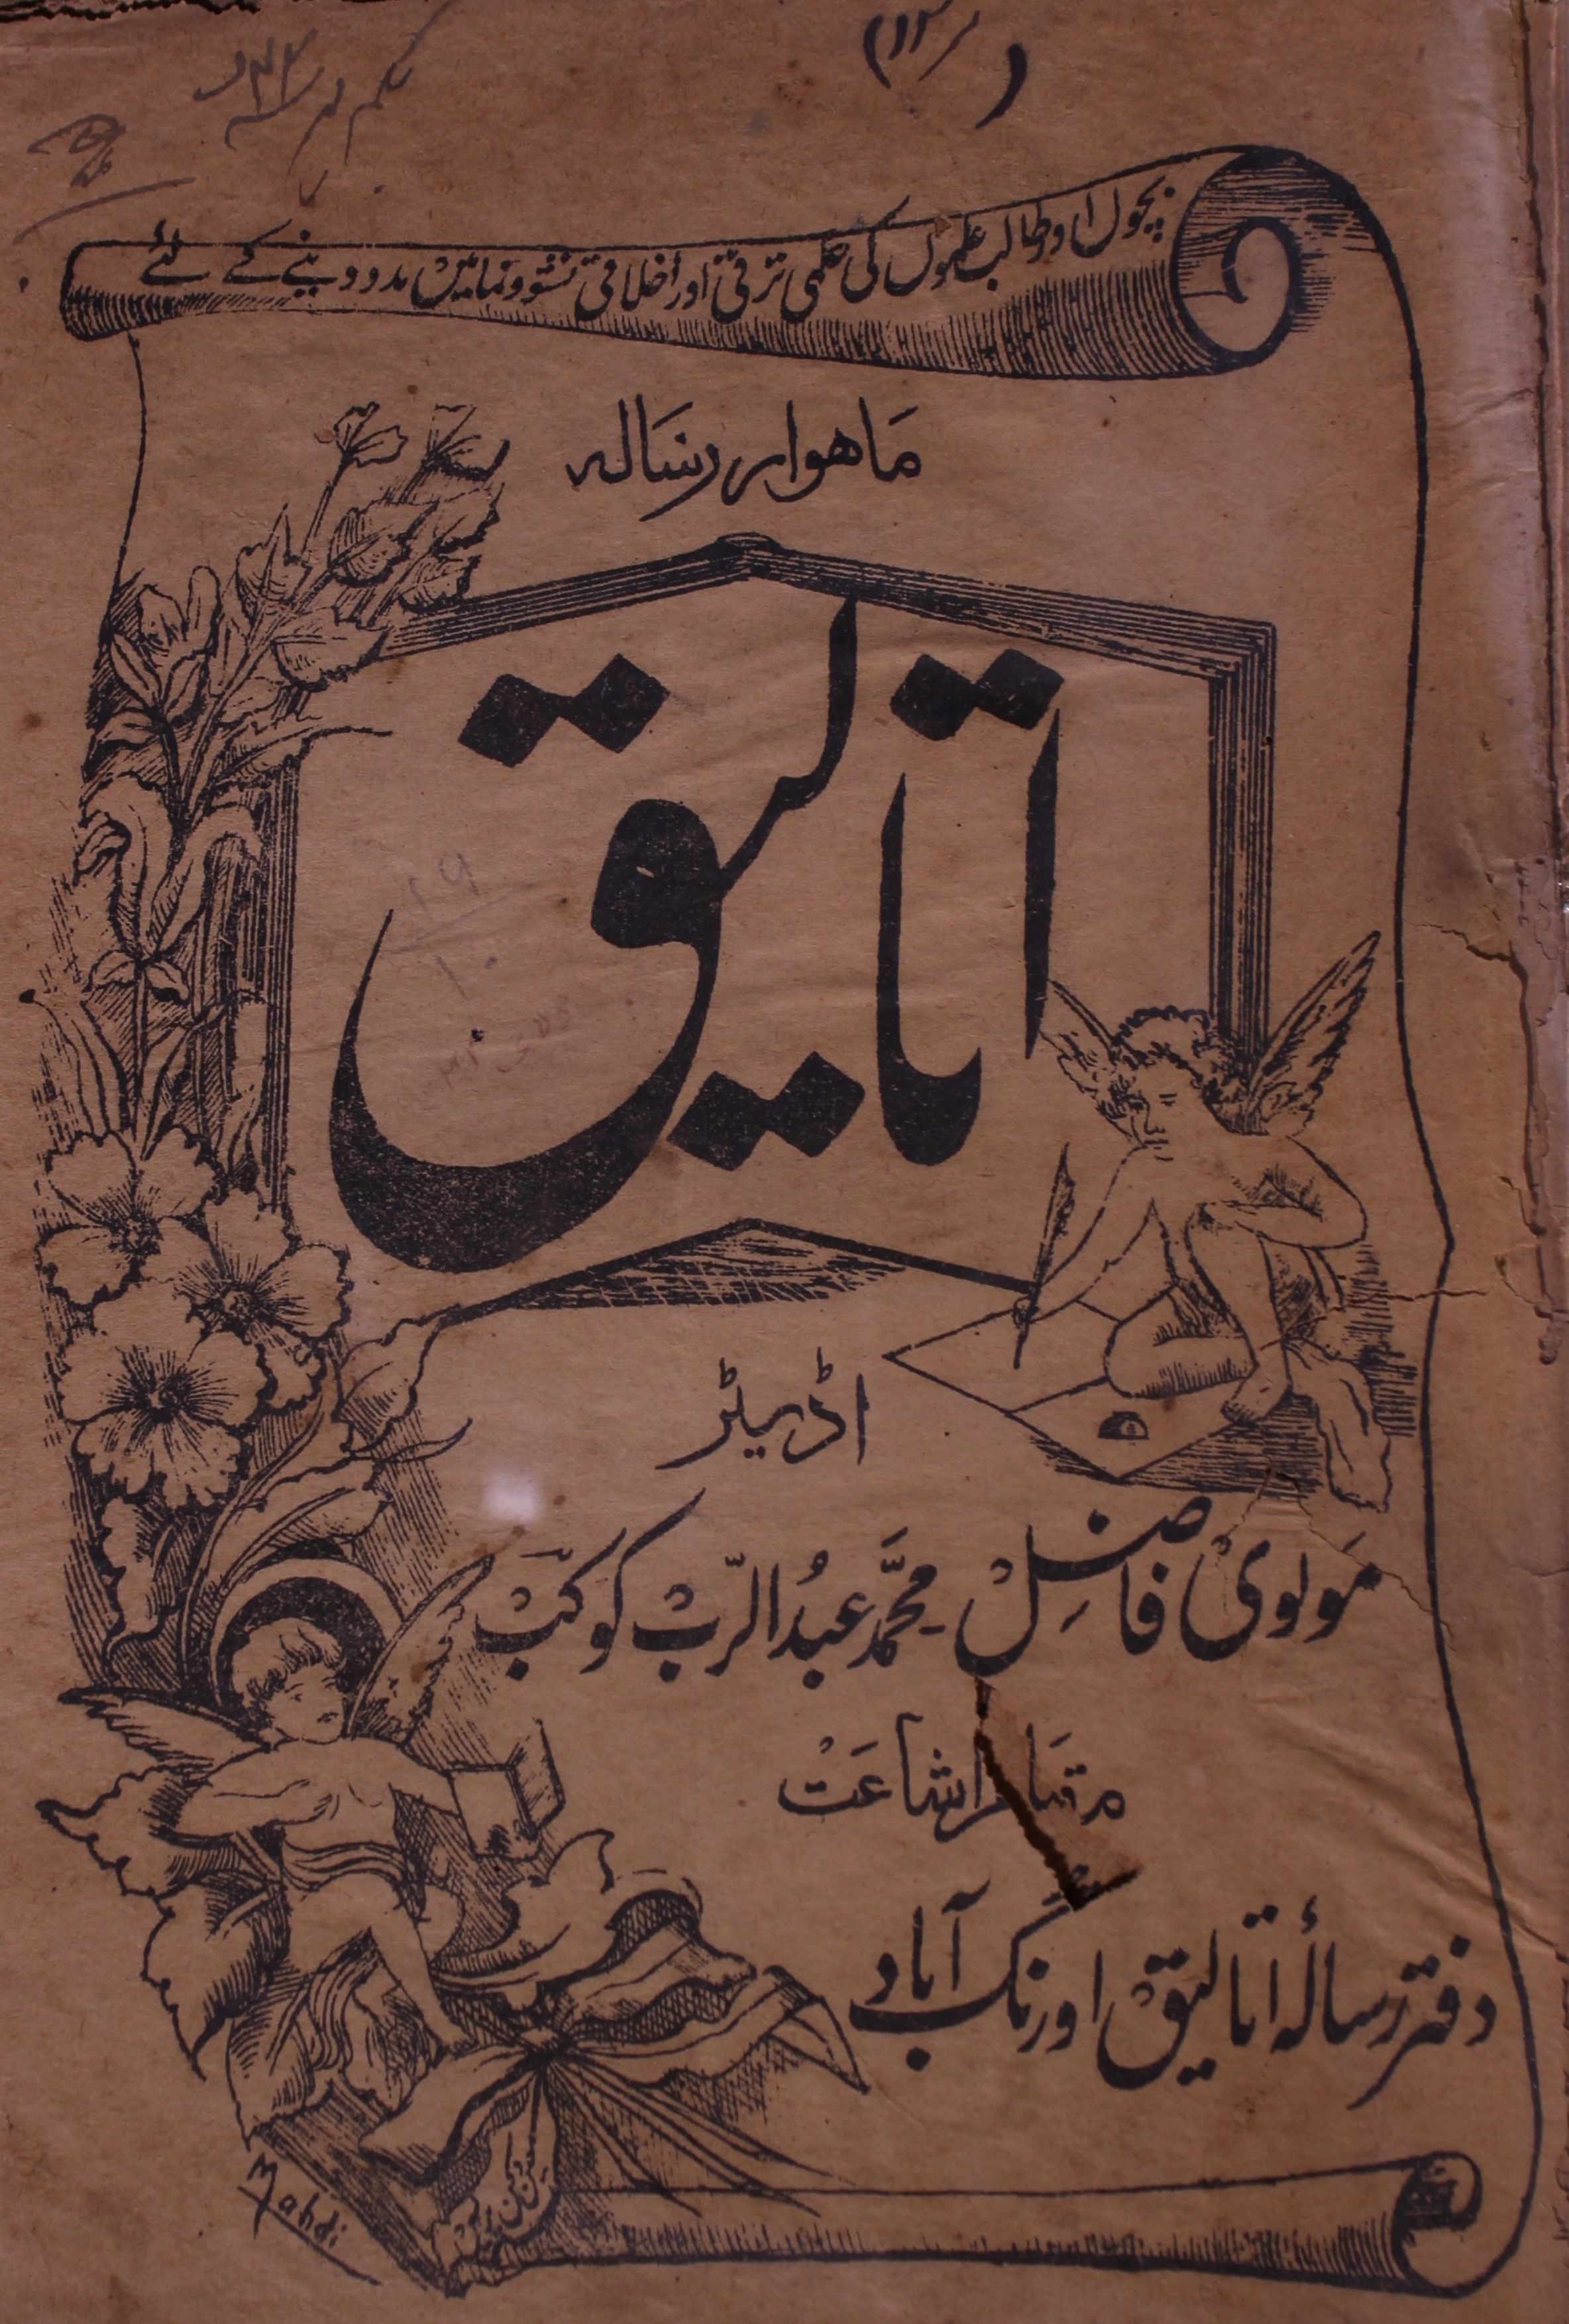 (۱۲)
بچوں اور طالب علموں کی علمی ترقی اور اخلاقی نشوونما میں مدد دینے کے لئے
ماہوار رسالہ
اتالیق
اڈیٹر
مولوی فاضل محمد عبدالرب کوکب
مقام اشاعت
دفتر رسالۂ اتالیق اورنگ آباد
Mahdi